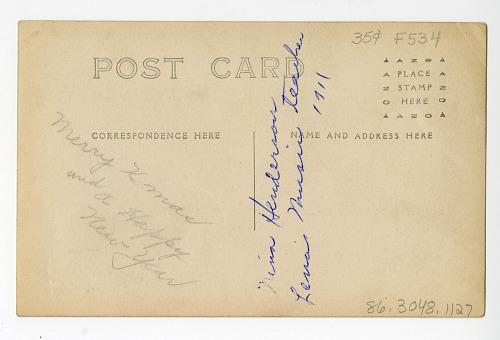 35¢ F534
POST CARD
AZO
PLACE
STAMP
HERE
AZO
CORRESPONDENCE HERE
NAME AND ADDRESS HERE
Merry Xmas
and a Happy
New Year
Nina Henderson
Lena's Music Teacher
1911
86.3048.1127